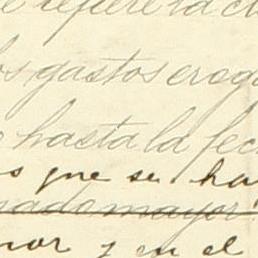 e refiere la c
los gastos erog
hasta la fec
s que se ha
nado mayor
nor y en el